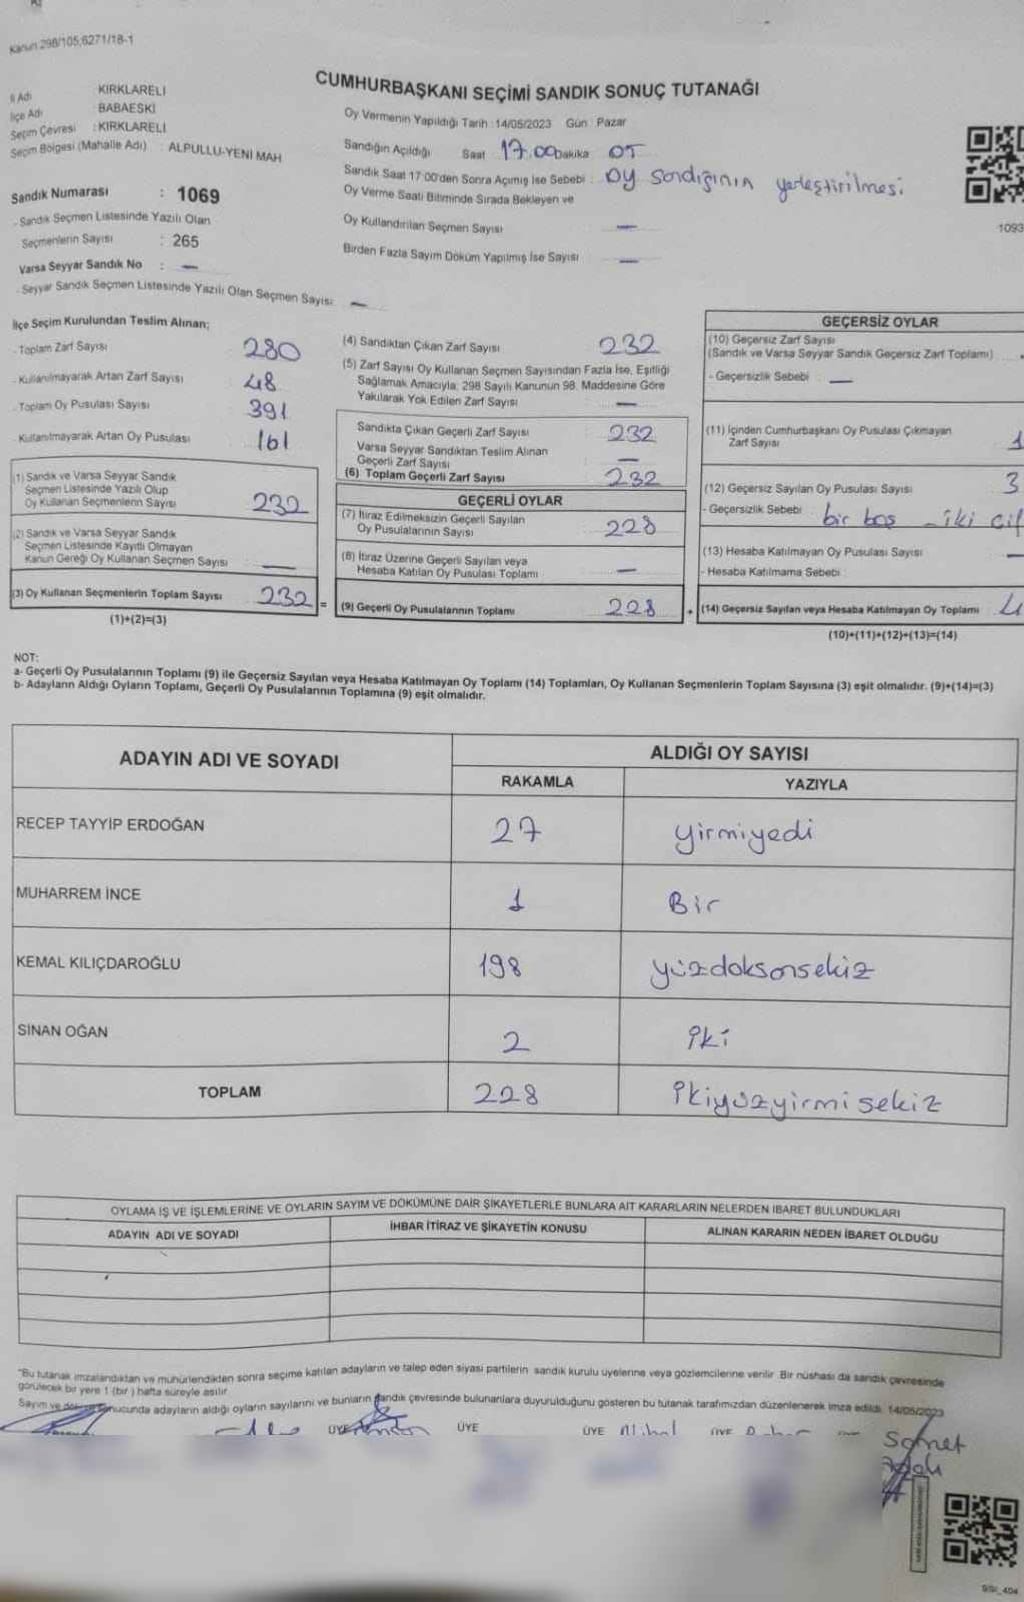 Kanun 298/105,6271/18-1
CUMHURBAŞKANI SEÇİMİ SANDIK SONUÇ TUTANAĞI
İl Adı KIRKLARELİ
İlçe Adı BABAESKİ
Seçim Çevresi : KIRKLARELİ
Seçim Bölgesi (Mahalle Adı) : ALPULLU-YENİ MAH
Sandık Numarası : 1069
- Sandık Seçmen Listesinde Yazılı Olan
Seçmenlerin Sayısı : 265
Varsa Seyyar Sandık No : —
- Seyyar Sandık Seçmen Listesinde Yazılı Olan Seçmen Sayısı: —
Oy Vermenin Yapıldığı Tarih :14/05/2023 Gün : Pazar
Sandığın Açıldığı Saat 17.00 Dakika 05
Sandık Saat 17:00'den Sonra Açımış İse Sebebi : Oy sandığının yerleştirilmesi
Oy Verme Saati Bitiminde Sırada Bekleyen ve
Oy Kullandırılan Seçmen Sayısı —
Birden Fazla Sayım Döküm Yapılmış İse Sayısı —
1093
İlçe Seçim Kurulundan Teslim Alınan;
- Toplam Zarf Sayısı 280
- Kullanılmayarak Artan Zarf Sayısı 48
- Toplam Oy Pusulası Sayısı 391
- Kullanılmayarak Artan Oy Pusulası 161
(1) Sandık ve Varsa Seyyar Sandık
Seçmen Listesinde Yazılı Olup
Oy Kullanan Seçmenlerin Sayısı 232
(2) Sandık ve Varsa Seyyar Sandık
Seçmen Listesinde Kayıtlı Olmayan
Kanun Gereği Oy Kullanan Seçmen Sayısı —
(3) Oy Kullanan Seçmenlerin Toplam Sayısı 232 =
(1)+(2)=(3)
(4) Sandıktan Çıkan Zarf Sayısı 232
(5) Zarf Sayısı Oy Kullanan Seçmen Sayısından Fazla İse, Eşitliği
Sağlamak Amacıyla; 298 Sayılı Kanunun 98. Maddesine Göre
Yakılarak Yok Edilen Zarf Sayısı —
Sandıkta Çıkan Geçerli Zarf Sayısı 232
Varsa Seyyar Sandıktan Teslim Alınan
Geçerli Zarf Sayısı —
(6) Toplam Geçerli Zarf Sayısı 232
GEÇERLİ OYLAR
(7) İtiraz Edilmeksizin Geçerli Sayılan
Oy Pusulalarının Sayısı 228
(8) İtiraz Üzerine Geçerli Sayılan veya
Hesaba Katılan Oy Pusulası Toplamı —
(9) Geçerli Oy Pusulalarının Toplamı 228 +
GEÇERSİZ OYLAR
(10) Geçersiz Zarf Sayısı
(Sandık ve Varsa Seyyar Sandık Geçersiz Zarf Toplamı)
- Geçersizlik Sebebi : —
(11) İçinden Cumhurbaşkanı Oy Pusulası Çıkmayan
Zarf Sayısı 1
(12) Geçersiz Sayılan Oy Pusulası Sayısı 3
- Geçersizlik Sebebi bir boş - iki çif
(13) Hesaba Katılmayan Oy Pusulası Sayısı —
- Hesaba Katılmama Sebebi :
(14) Geçersiz Sayılan veya Hesaba Katılmayan Oy Toplamı 4
(10)+(11)+(12)+(13)=(14)
NOT:
a- Geçerli Oy Pusulalarının Toplamı (9) ile Geçersiz Sayılan veya Hesaba Katılmayan Oy Toplamı (14) Toplamları, Oy Kullanan Seçmenlerin Toplam Sayısına (3) eşit olmalıdır. (9)+(14)=(3)
b- Adayların Aldığı Oyların Toplamı, Geçerli Oy Pusulalarının Toplamına (9) eşit olmalıdır.
ADAYIN ADI VE SOYADI ALDIĞI OY SAYISI
RAKAMLA YAZIYLA
RECEP TAYYİP ERDOĞAN 27 yirmiyedi
MUHARREM İNCE 1 Bir
KEMAL KILIÇDAROĞLU 198 yüzdoksansekiz
SİNAN OĞAN 2 iki
TOPLAM 228 ikiyüzyirmisekiz
OYLAMA İŞ VE İŞLEMLERİNE VE OYLARIN SAYIM VE DÖKÜMÜNE DAİR ŞİKAYETLERLE BUNLARA AİT KARARLARIN NELERDEN İBARET BULUNDUKLARI
ADAYIN ADI VE SOYADI İHBAR İTİRAZ VE ŞİKAYETİN KONUSU ALINAN KARARIN NEDEN İBARET OLDUĞU
"Bu tutanak imzalandıktan ve mühürlendikten sonra seçime katılan adayların ve talep eden siyasi partilerin sandık kurulu üyelerine veya gözlemcilerine verilir. Bir nüshası da sandık çevresinde
görülecek bir yere 1 (bir) hafta süreyle asılır
Sayım ve döküm sonucunda adayların aldığı oyların sayılarını ve bunların sandık çevresinde bulunanlara duyurulduğunu gösteren bu tutanak tarafımızdan düzenlenerek imza edildi. 14/05/2023
ÜYE ÜYE ÜYE ÜYE
Samet
SSI_404